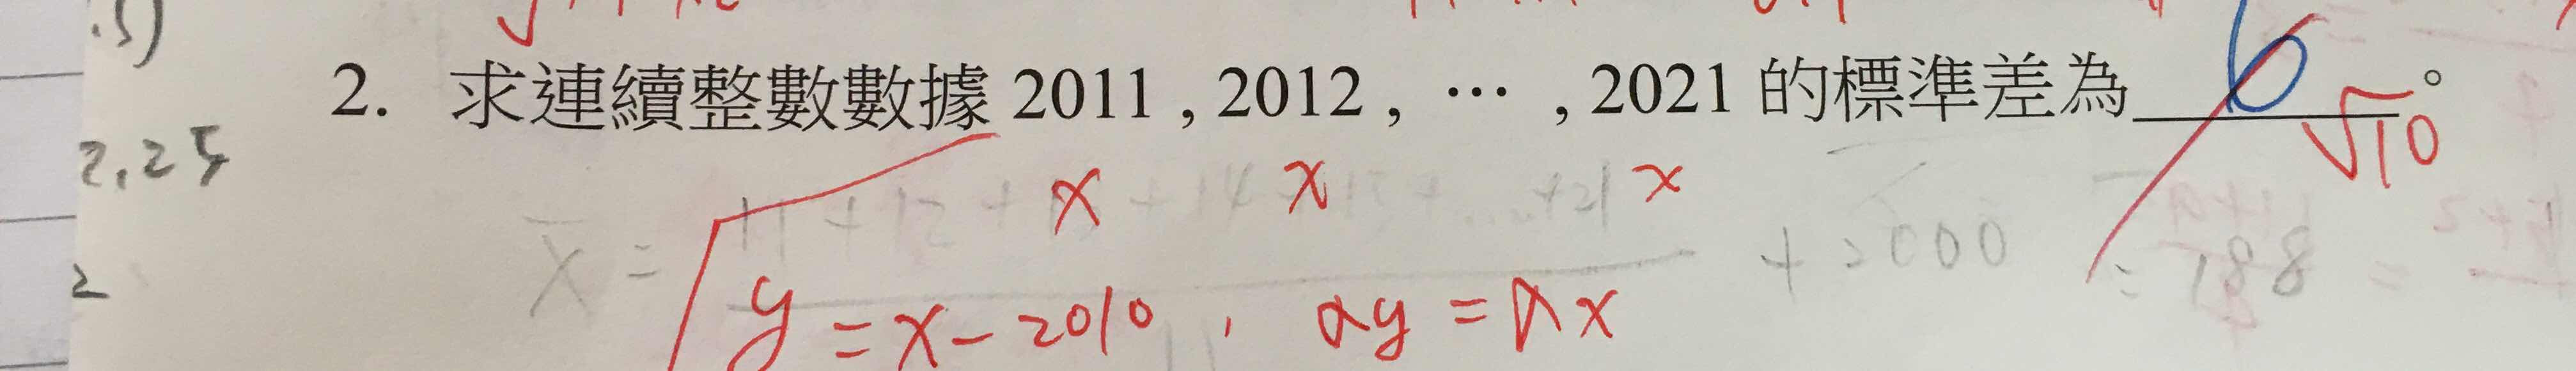 .5)
2. 求連續整數數據 2011 , 2012 , … , 2021 的標準差為 6 √10 。
2.25
x x x
x̄ = 11+12+13+14+15+...+21 + 2000 = 188
2
y = x - 2010 ， σy = σx